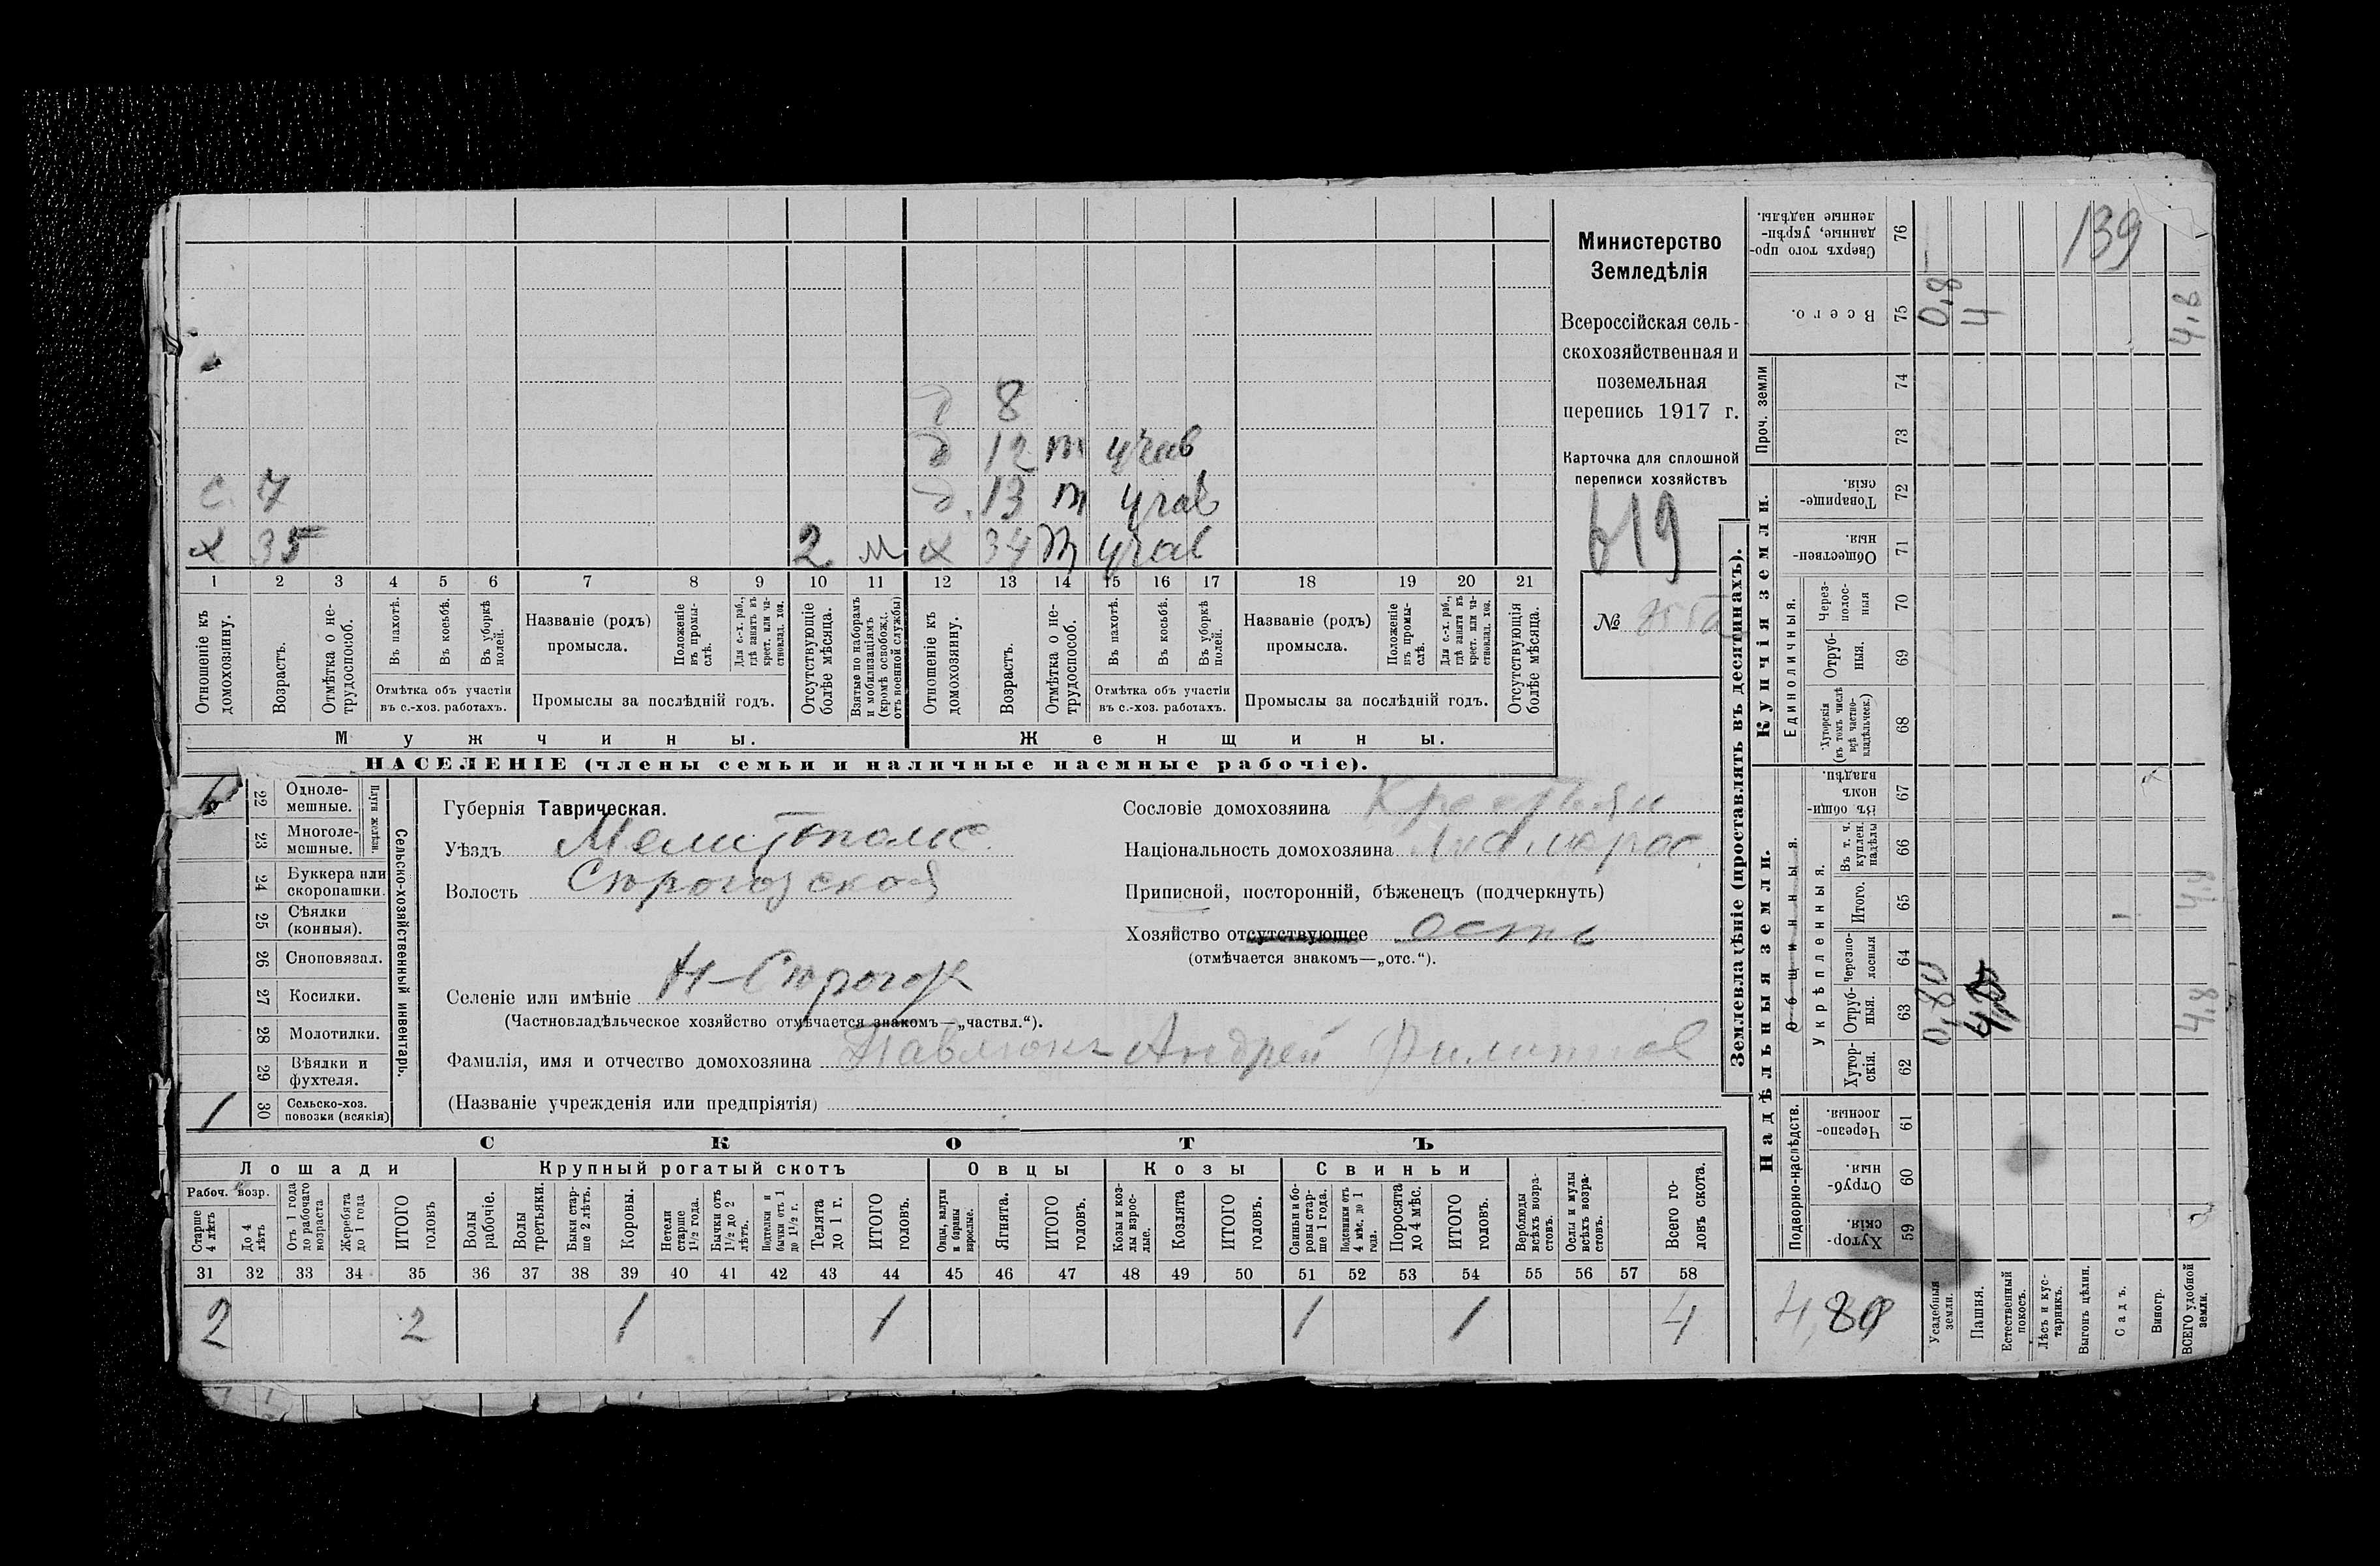 139
Министерство
Земледѣлія
Всероссійская сель-
скохозяйственная и
поземельная
перепись 1917 г.
Карточка для сплошной
переписи хозяйствъ
619
№
д 8
д 12 т учав
с. 7 д. 13 т учав
х 35 2 м х 34 т учав
1 2 3 4 5 6 7 8 9 10 11 12 13 14 15 16 17 18 19 20 21
Отношеніе къ домохозяину.
Возрастъ.
Отмѣтка о не-трудоспособ.
Въ пахотѣ.
Въ косьбѣ.
Въ уборкѣ полей.
Отмѣтка объ участіи
въ с.-хоз. работахъ.
Названіе (родъ)
промысла.
Положеніе въ промы-слѣ.
Для с.-х. раб., гдѣ занятъ въ крест. или ча-стновлад. хоз.
Промыслы за послѣдній годъ.
Отсутствующіе болѣе мѣсяца.
Взятые по наборамъ и мобилизаціямъ (кромѣ освобожд. отъ военной службы)
Отношеніе къ домохозяину.
Возрастъ.
Отмѣтка о не-трудоспособ.
Въ пахотѣ.
Въ косьбѣ.
Въ уборкѣ полей.
Отмѣтка объ участіи
въ с.-хоз. работахъ.
Названіе (родъ)
промысла.
Положеніе въ промы-слѣ.
Для с.-х. раб., гдѣ занята въ крест. или ча-стновлад. хоз.
Промыслы за послѣдній годъ.
Отсутствующія болѣе мѣсяца.
Мужчины. Женщины.
НАСЕЛЕНІЕ (члены семьи и наличные наемные рабочіе).
Сельско-хозяйственный инвентарь.
Плуги желѣзн.
22 Одноле-мешные.
23 Многоле-мешные.
24 Буккера или скоропашки.
25 Сѣялки (конныя).
26 Сноповязал.
27 Косилки.
28 Молотилки.
29 Вѣялки и фухтеля.
1 30 Сельско-хоз. повозки (всякія)
Губернія Таврическая.
Уѣздъ Мелитопольс.
Волость Сѣрогозской
Селеніе или имѣніе Н-Сѣрогоз
(Частновладѣльческое хозяйство отмѣчается знакомъ—„частвл.“).
Фамилія, имя и отчество домохозяина Павлюкъ Андрей Филиппов
(Названіе учрежденія или предпріятія)
Сословіе домохозяина Крестьян
Національность домохозяина Малорос.
Приписной, посторонній, бѣженецъ (подчеркнуть)
Хозяйство отсутствующее есть
(отмѣчается знакомъ—„отс.“).
СКОТЪ
Лошади Крупный рогатый скотъ Овцы Козы Свиньи
Рабоч. возр.
Старше 4 лѣтъ
До 4 лѣтъ
Отъ 1 года до рабочаго возраста
Жеребята до 1 года
ИТОГО головъ
Волы рабочіе.
Волы третьяки.
Быки стар-ше 2 лѣтъ.
Коровы.
Нетели старше 1½ года.
Бычки отъ 1½ до 2 лѣтъ.
Подтелки и бычки отъ 1 до 1½ г.
Телята до 1 г.
ИТОГО головъ.
Овцы, валухи и бараны взрослые.
Ягнята.
ИТОГО головъ.
Козы и коз-лы взрос-лые.
Козлята
ИТОГО головъ.
Свиньи и бо-ровы стар-ше 1 года.
Подсвинки отъ 4 мѣс. до 1 года.
Поросята до 4 мѣс.
ИТОГО головъ.
Верблюды всѣхъ возра-стовъ.
Ослы и мулы всѣхъ возра-стовъ.
Всего го-ловъ скота.
31 32 33 34 35 36 37 38 39 40 41 42 43 44 45 46 47 48 49 50 51 52 53 54 55 56 57 58
2 2 1 1 1 1 4
Землевладѣніе (проставлять въ десятинахъ).
Надѣльныя земли. Купчія земли.
Подворно-наслѣдств.
Общинныя.
Укрѣпленныя.
Единоличныя.
Проч. земли
59 Хутор-скія.
60 Отруб-ныя.
61 Черезпо-лосныя
62 Хутор-скія.
63 Отруб-ныя.
64 Черезпо-лосныя
65 Итого.
66 Въ т. ч. куплен. надѣлы
67 Въ общи-номъ владѣн.
68 Хуторскія (въ томъ числѣ всѣ частно-владѣльческ.)
69 Отруб-ныя.
70 Через-полос-ныя
71 Обществен-ныя
72 Товарище-скія.
73
74
75 Всего.
76 Сверхъ того про-данные, укрѣп-ленные надѣлы.
4,80
Усадебныя земли. 0,80 0,8
Пашня. 4
Естественный покосъ.
Лѣсъ и кус-тарникъ.
Выгонъ цѣлин.
Садъ.
Виногр.
ВСЕГО удобной земли. 4.8 4.8